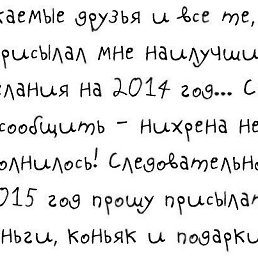 жаемые друзья и все те,
рисылал мне наилучши
елания на 2014 год... С
сообщить - нихрена не
олнилось! Следовательно
015 год прошу присылат
ньги, коньяк и подарки